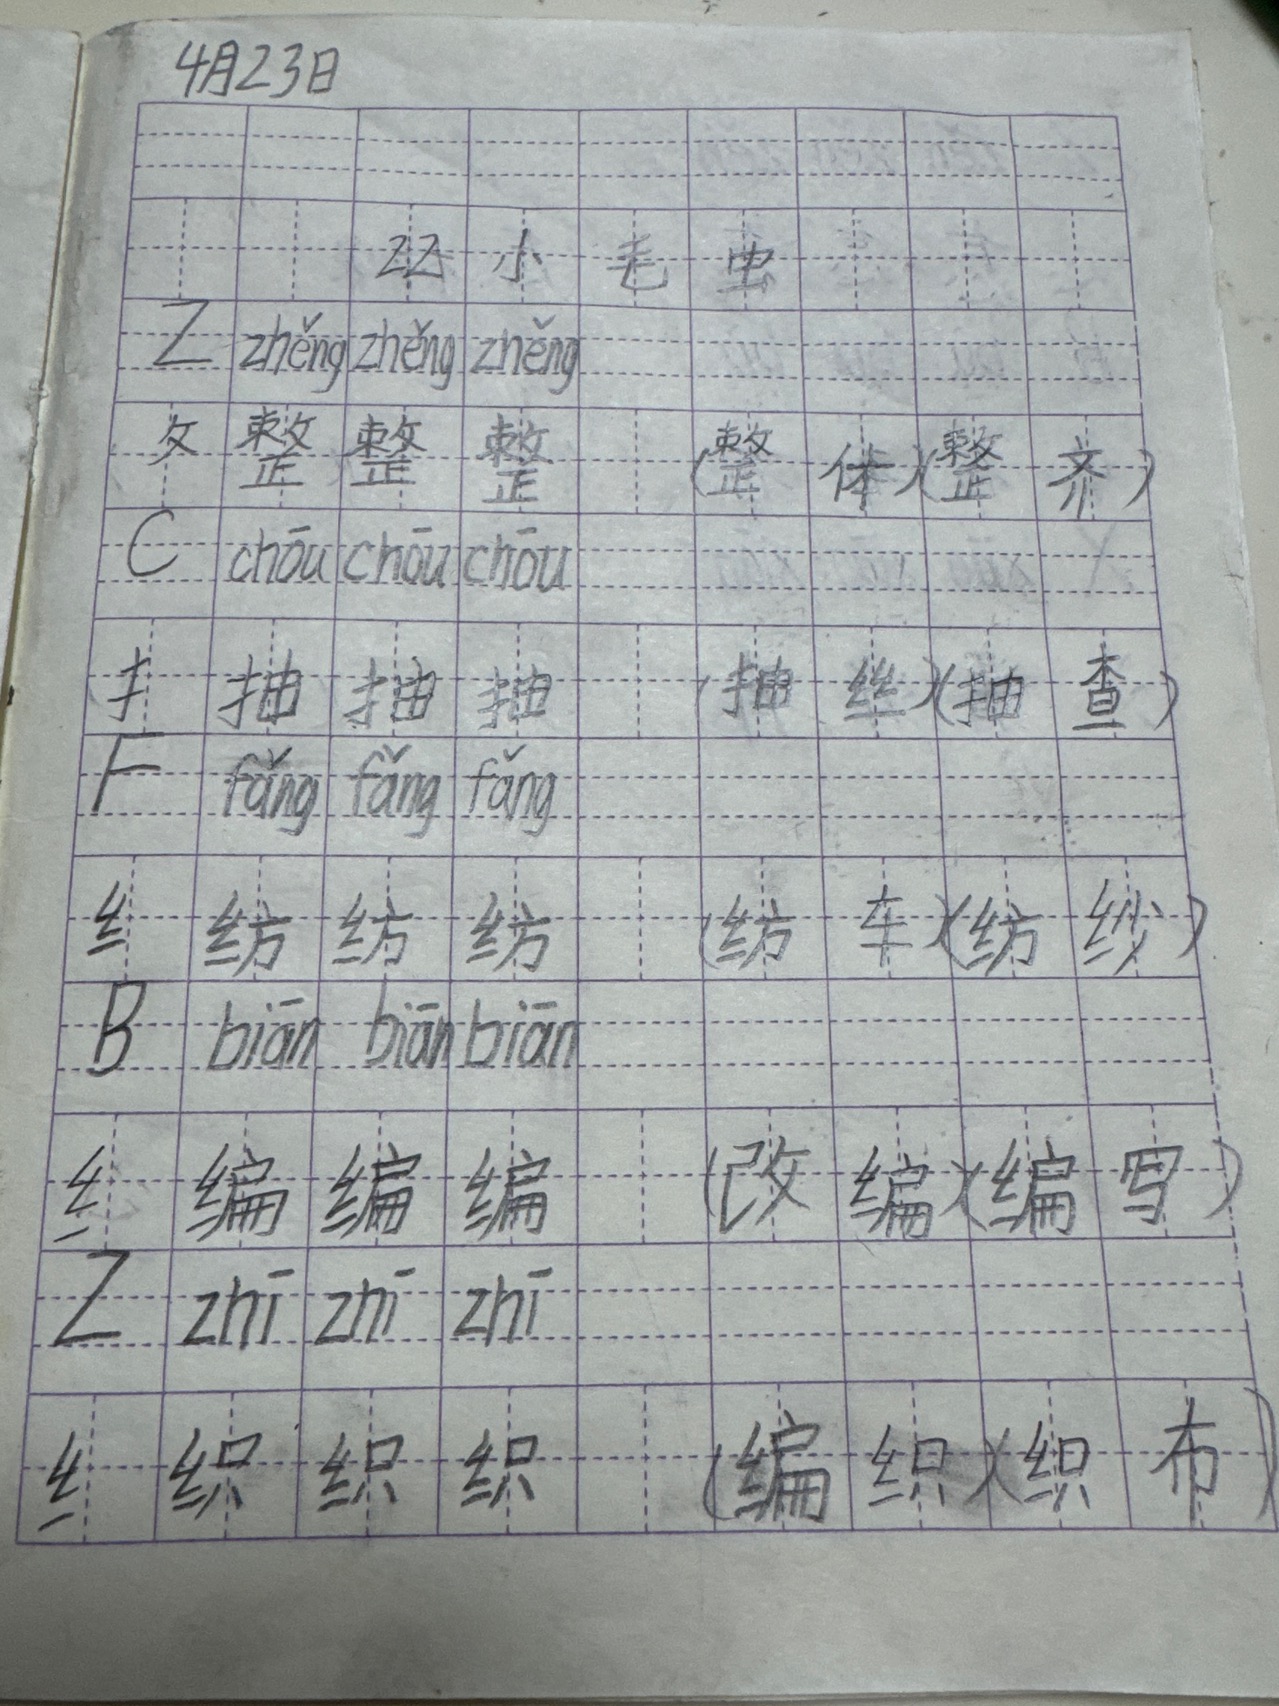 4月23日
22 小毛虫
Z zhěng zhěng zhěng
攵 整 整 整 (整体)(整齐)
C chōu chōu chōu
扌 抽 抽 抽 (抽丝)(抽查)
F fǎng fǎng fǎng
纟 纺 纺 纺 (纺车)(纺纱)
B biān biān biān
纟 编 编 编 (改编)(编写)
Z zhī zhī zhī
纟 织 织 织 (编织)(织布)